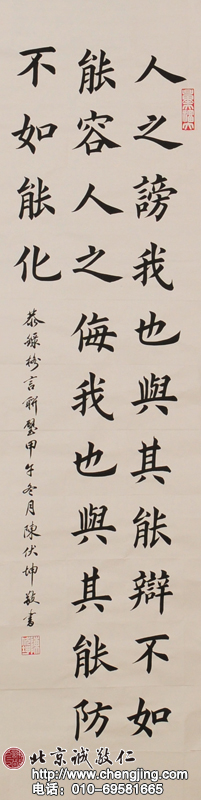 人之謗我也與其能辯不如
能容人之侮我也與其能防
不如能化
恭錄格言聯璧甲午冬月陳伏坤敬書
北京诚敬仁
http://www.chengjing.com
电话：010-69581665